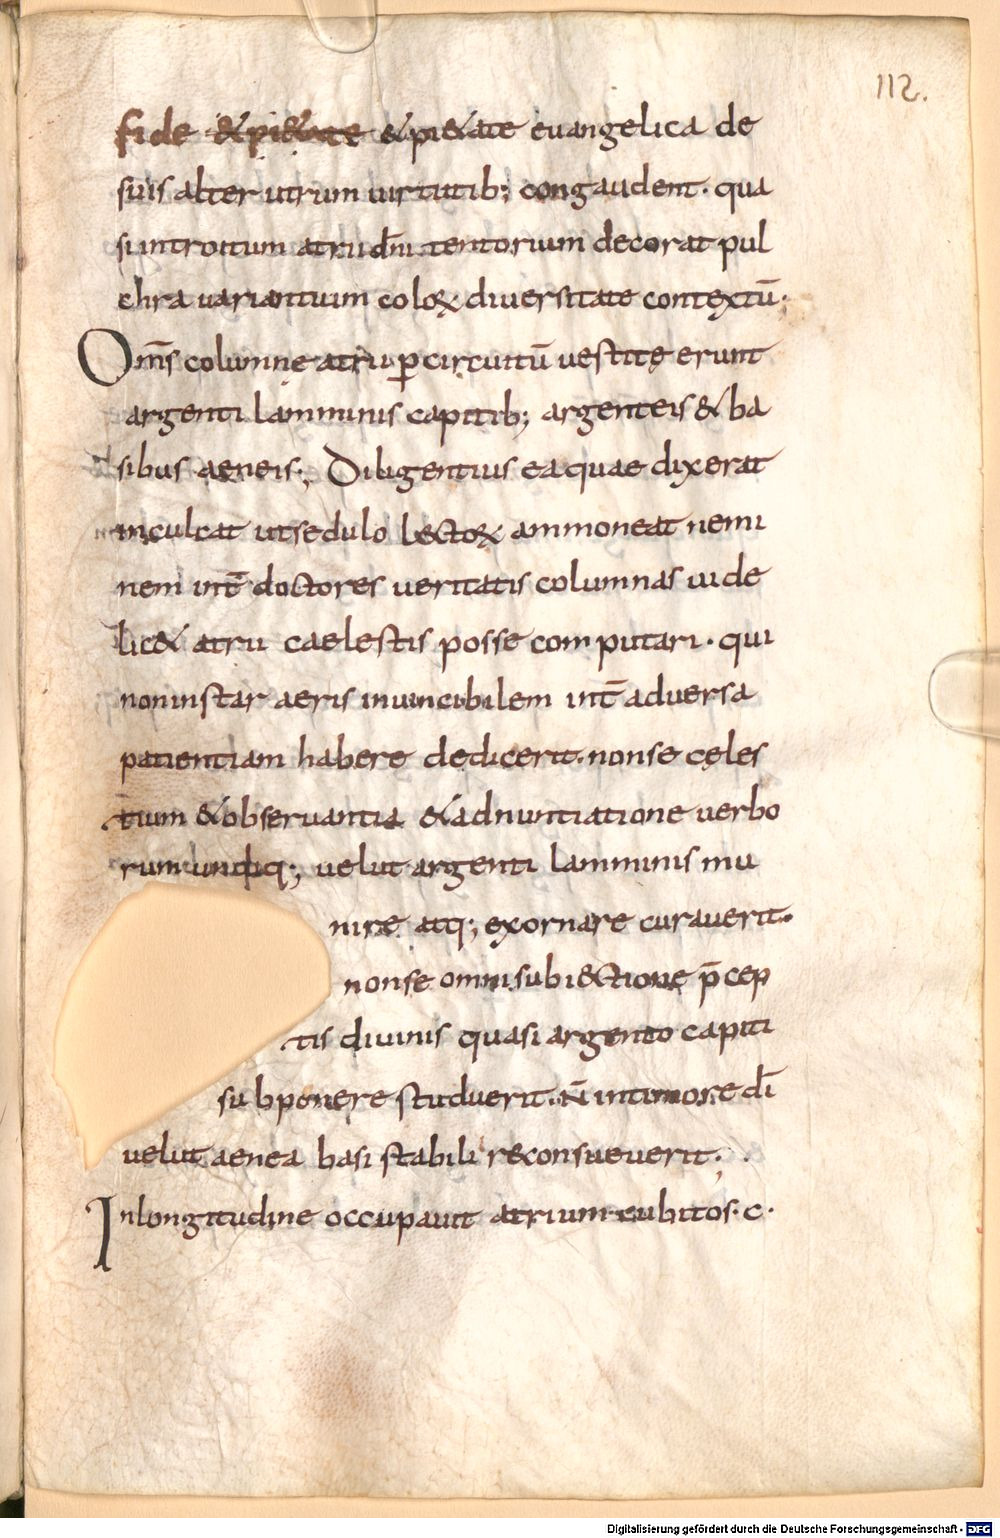 112.
fide & pi&ate & pi&ate euangelica de
suis alter utrum uirtutib; congaudent· qua
si introitum atrii dn̄i tentorium decorat pul
chra uariantium coloꝝ diuersitate contextū·
Om̄s columne atrii ꝑ circuitū uestitę erunt
argenti lamminis capitib; argenteis & ba
sibus aeneis; Diligentius ea quae dixerat
inculcat ut sedulo lectoꝝ ammoneat nemi
nem int̄ doctores ueritatis columnas uide
lic& atrii caelestis posse computari· qui
non instar aeris inuincibilem int̄ aduersa
patientiam habere dedicerit· non se cęles
tium & obseruantia & adnuntiatione uerbo
rum undiq; uelut argenti lamminis mu
nire atq; exornare curauerit·
non se omni subi&ctione p̄cep
tis diuinis quasi argenteo capiti
subponere studuerit· n̄ in timore dī
uelut aenea basi stabilir& consueuerit·
In longitudine occupauit atrium cubitos· c·
Digitalisierung gefördert durch die Deutsche Forschungsgemeinschaft - DFG